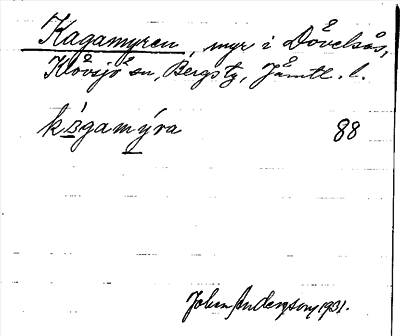 Kagamyren, myr i Dövelsås,
Klövsjö sn, Bergs tg, Jämtl. l.
kàgamýra 88
Johan Anderzson, 1931.